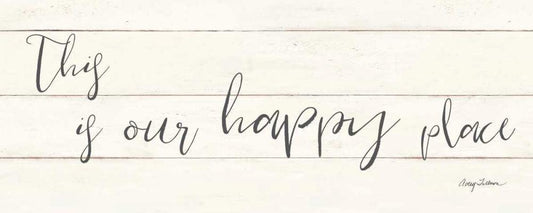 This
is our happy place
Avery Tillmon